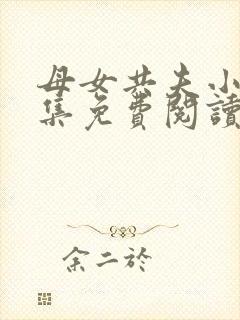 母女共夫小
集免費閱讀
余二於